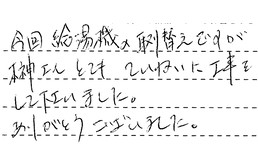 今回給湯機の取替えですが
榊さんとてもていねいに工事を
して下さいました。
ありがとうございました。